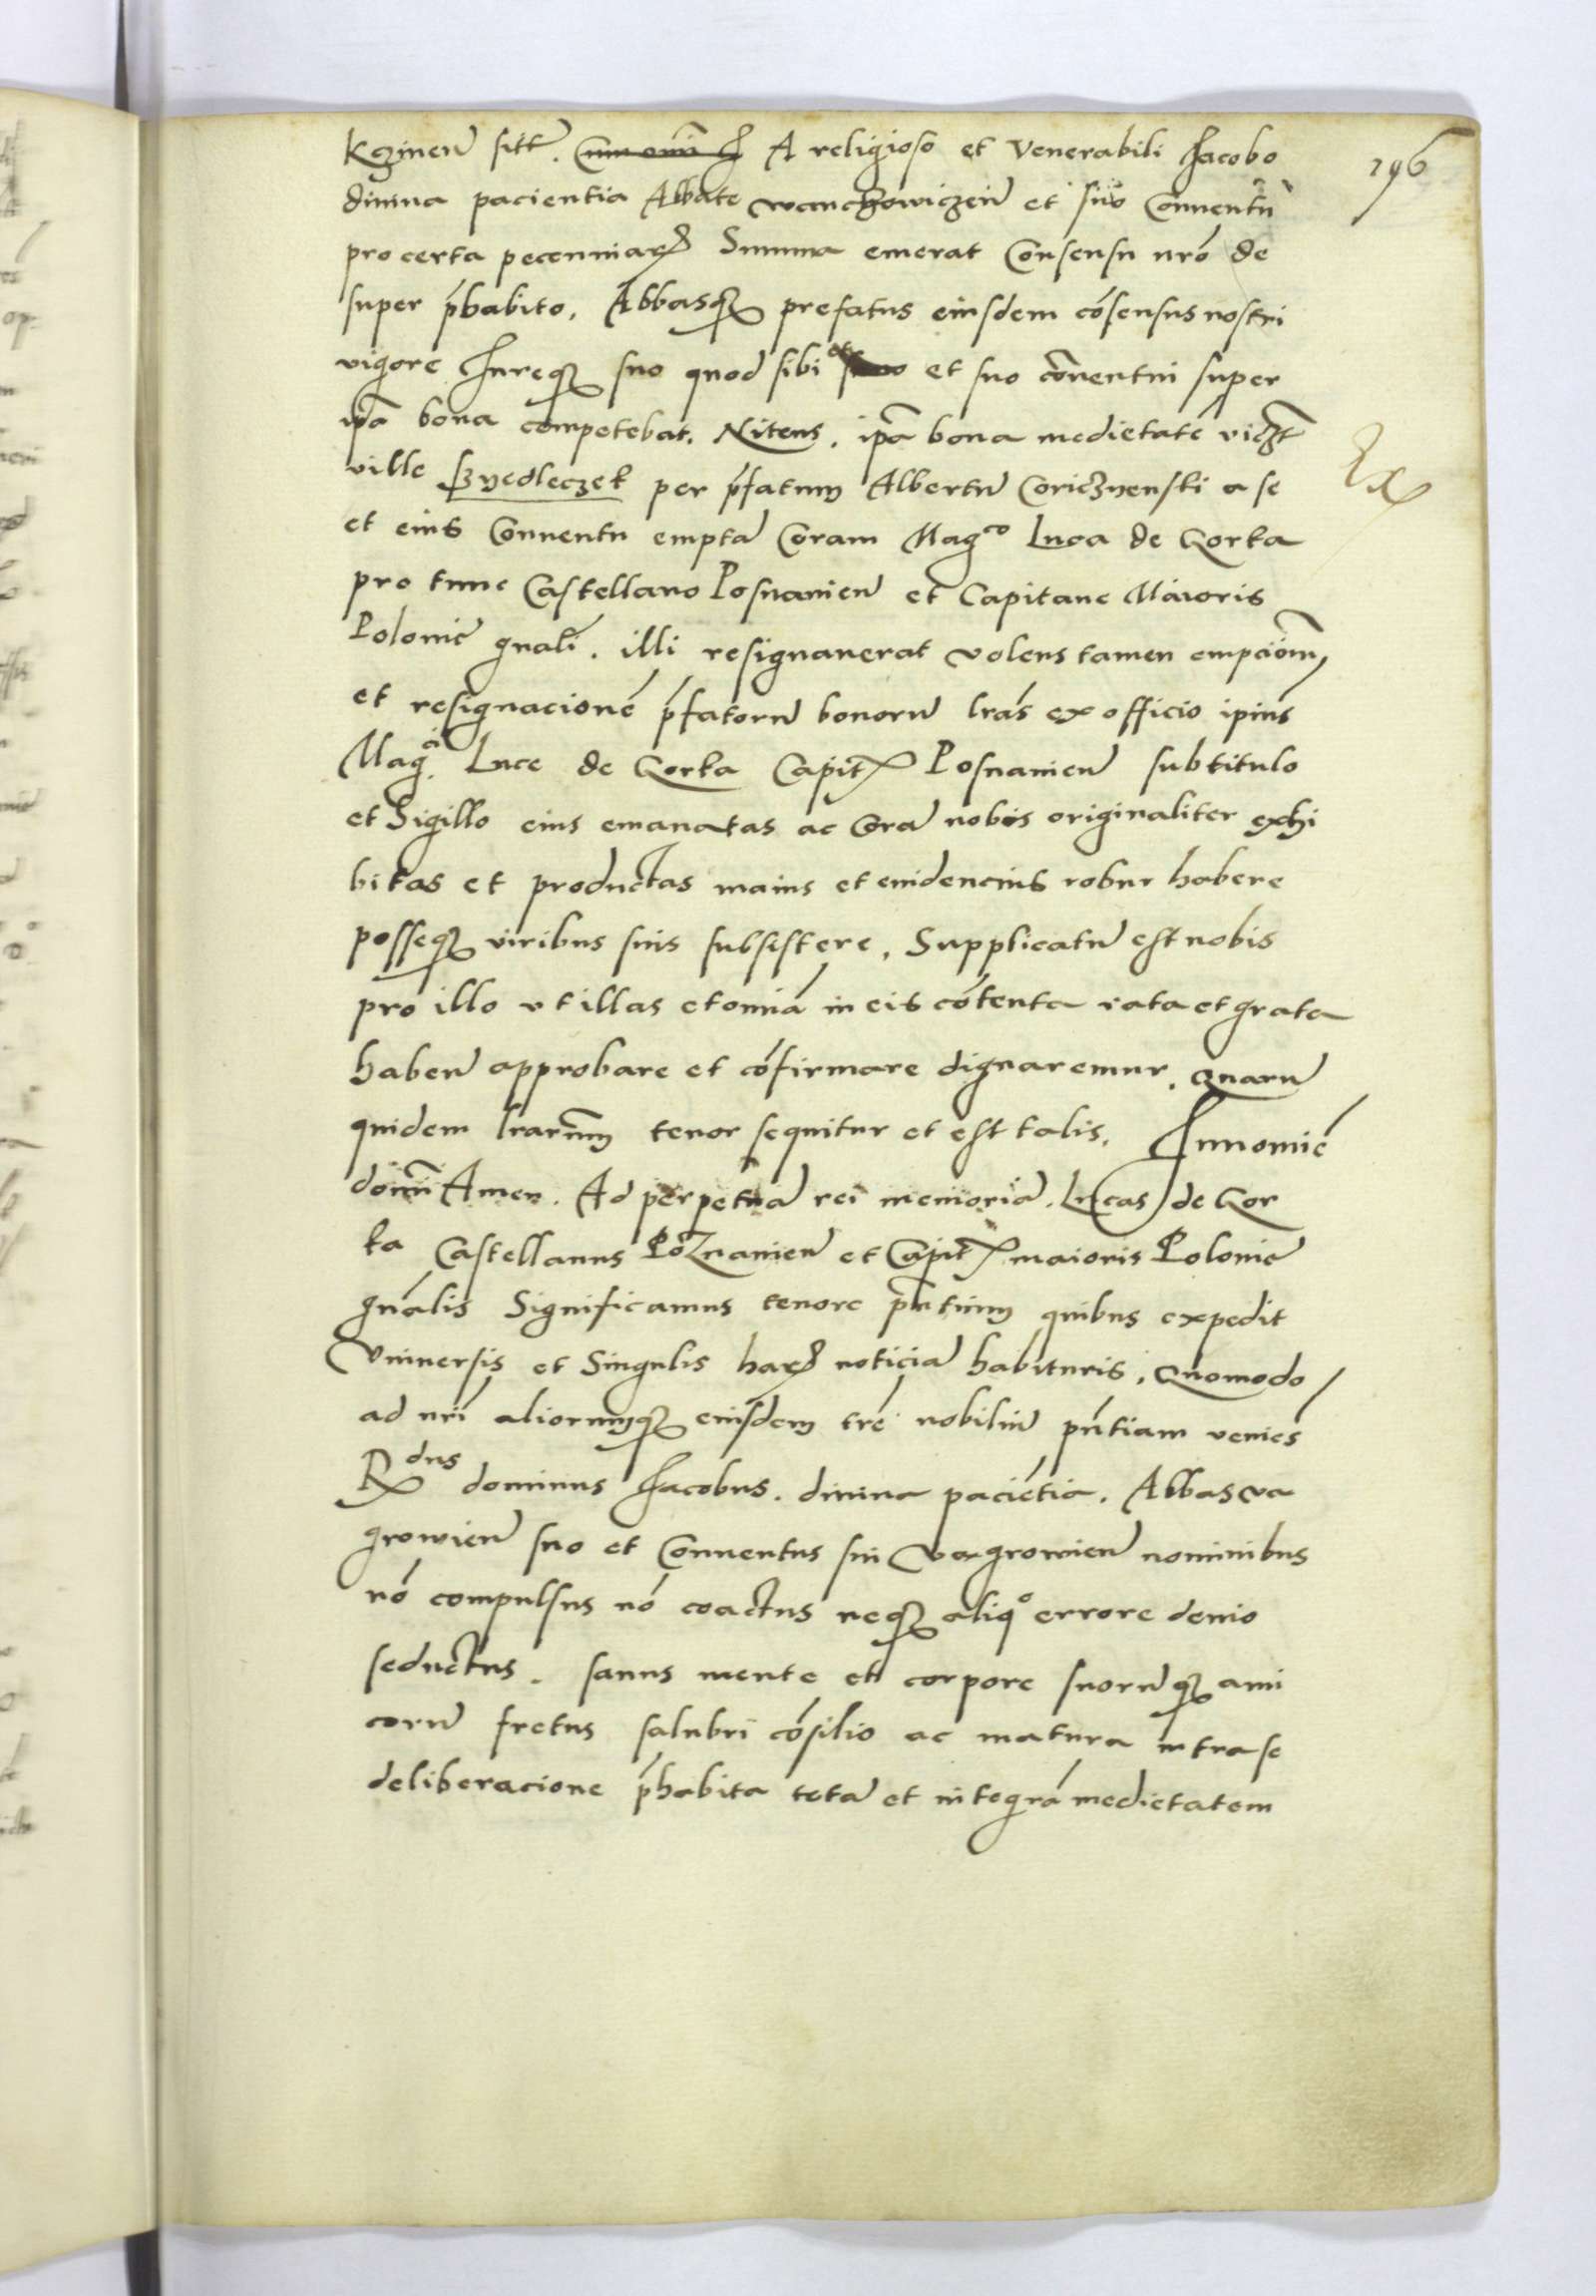 196
Kczinen̄ sitt̄. Cum omī J A religioso et Venerabili Jacobo
divina paciencia Abbate wanchowiczen̄ et suo Conventu
pro certa pecuniar Summa emerat Consensu nr̄o de
super p̄habito, Abbasq prefatus eiusdem cōsensus nostri
vigore Jureq suo quod sibi et suo et suo cōventui super
ip̄a bona competebat. Nitens. ip̄a bona medietatē viczt
ville Szyedleczek per p̄fatum Albertū Coriczyenski a se
et eius Conventu emptā Coram Magco Luca de Gorka
pro tunc Castellano Posnanien̄ et Capitane Maioris
Polonie gnali. illi resignaverat volens tamen empcionm̄
et resignacionē p̄fatorū bonorū lrās ex officio ipius
Magci Luce de Gorka Capit Posnanien̄ sub titulo
et Sigillo eius emanatas ac Corā nobis originaliter exhi
bitas et productas maius et evidencius robur habere
posseq viribus suis subsistere, Supplicatū est nobis
pro illo ut illas et omnia in eis cōtenta rata et grata
haben̄ approbare et cōfirmare dignaremur. Quarū
quidem lrarum tenor sequitur et est talis. In nomie
domini Amen. Ad perpetuā rei memoriā. Lucas de Gor
ka Castellanus Poznanien̄ et Capit maioris Polonie
gnalis Significamus tenore p̄ntium quibus expedit
Universis et Singulis har noticiā habituris, Quomodo
ad nrī aliorumq eiusdem trē nobiliū pn̄tiam veniēs
Rdus dominus Jacobus. divina paciētia. Abbas va
growien̄ suo et Conventus sui Vagrowien̄ nominibus
nō compulsus nō coactus neq aliqo errore devio
seductus. sanus mente et corpore suorūq ami
corū fretus salubri cōsilio ac matura intra se
deliberacione p̄habita totā et integrā medietatem